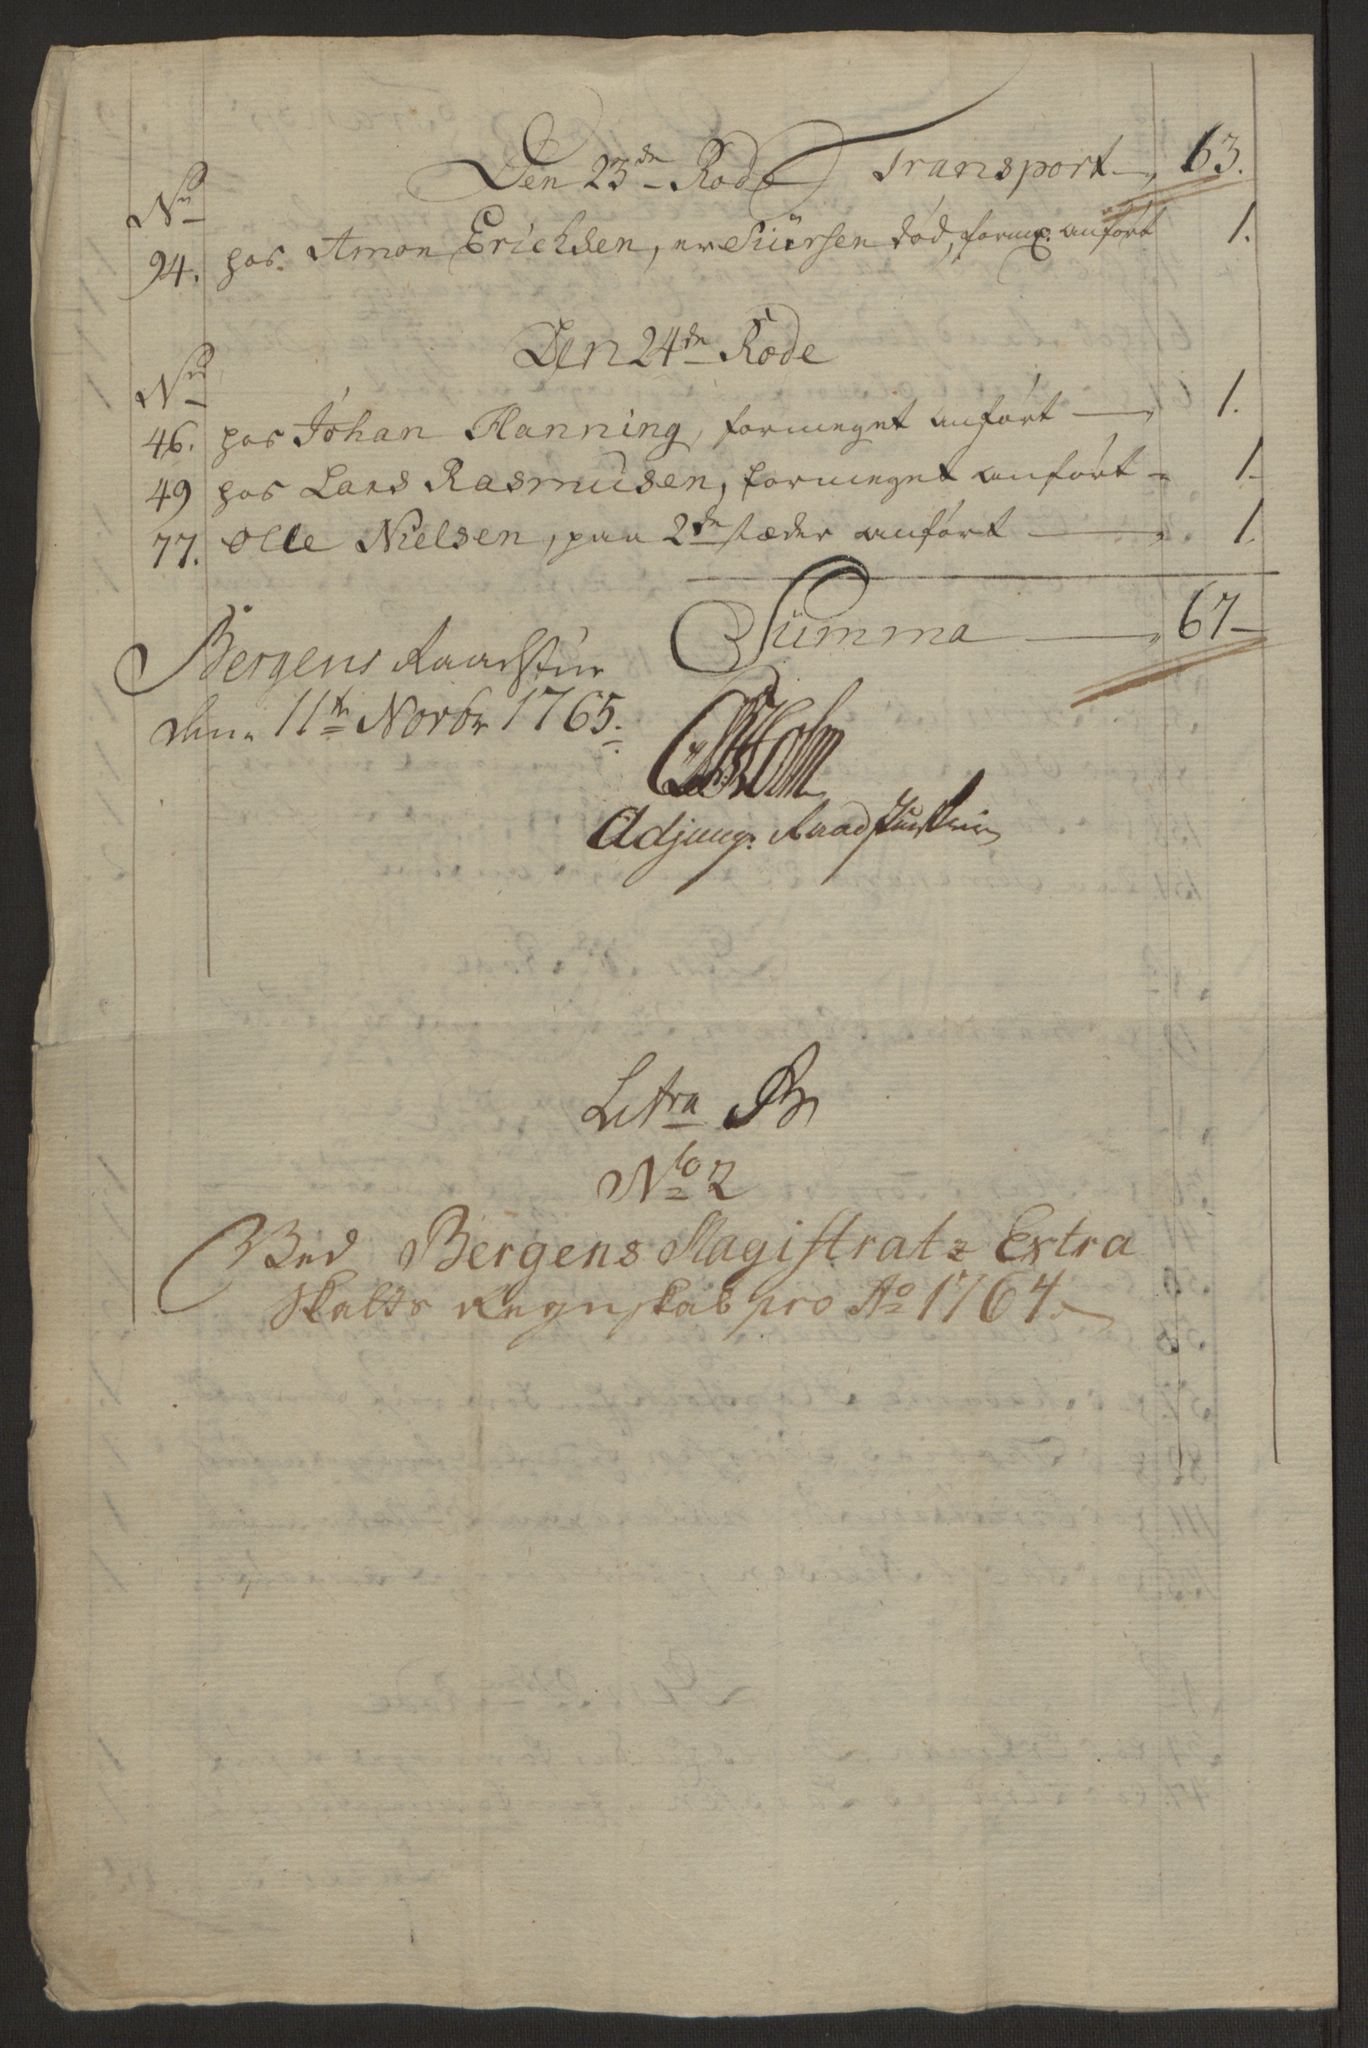 Den 23de Rode Transport 63.
No
94. hos Amon Erichsen, er Siursen død, form: anført 1.
Den 24de Rode
No
46. hos Johan Manning, formeget anført 1.
49 hos Lars Rasmusen, formeget anført 1.
77. Olle Nielsen, paa 2de stæder anført 1.
Summa 67
Bergens Raadstue
den 11te Novbr 1765.
Holm
Adjung: Raadstueskriver
Litra B
No 2
Ved Bergens Magistratz Extra
Skatts Regnskab pro Ao 1764.